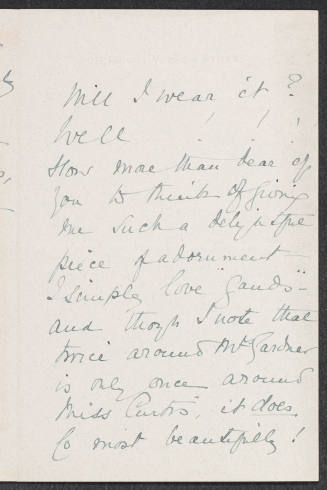 Will I wear it?
Well ! ! !
How more than dear of
you to think of giving
me such a delightful
piece of adornment –
I simply love "gauds" –
and though I note that
twice around Mrs Gardner
is only once around
Miss Curtis, it does
so most beautifully!